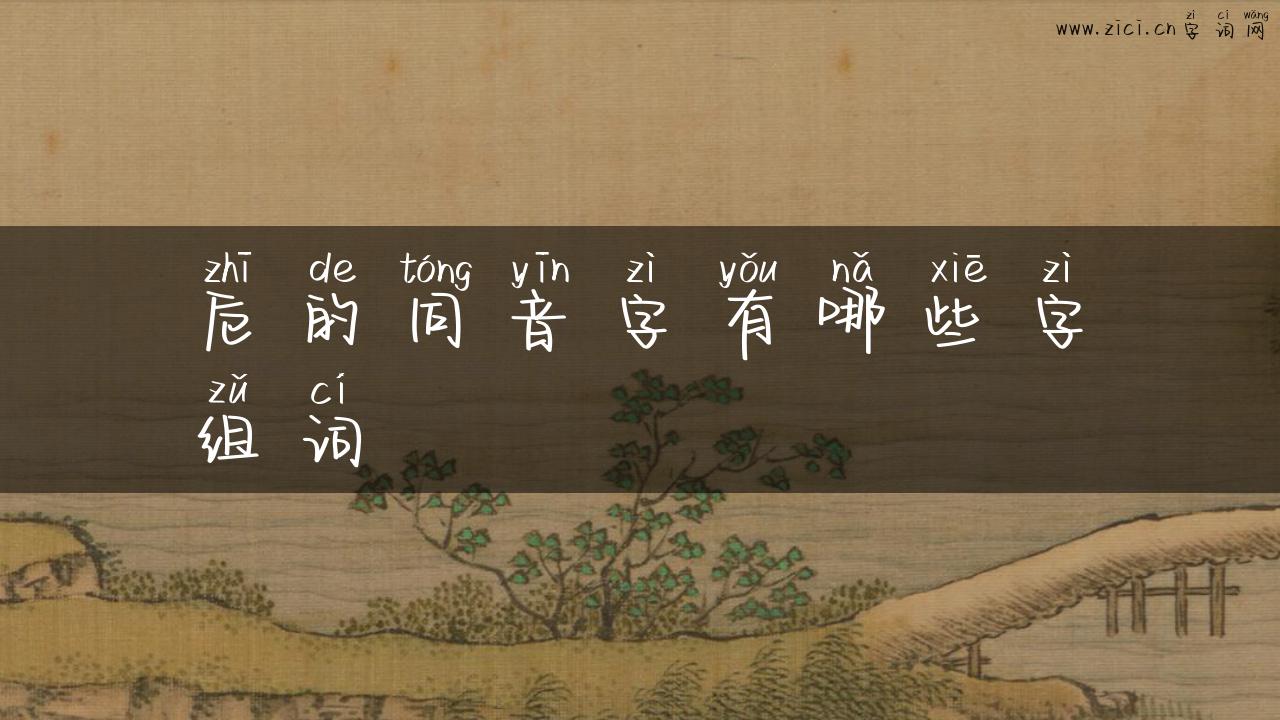 zì cí wǎng
www.zici.cn 字 词 网
zhī de tóng yīn zì yǒu nǎ xiē zì
卮 的 同 音 字 有 哪 些 字
zǔ cí
组 词